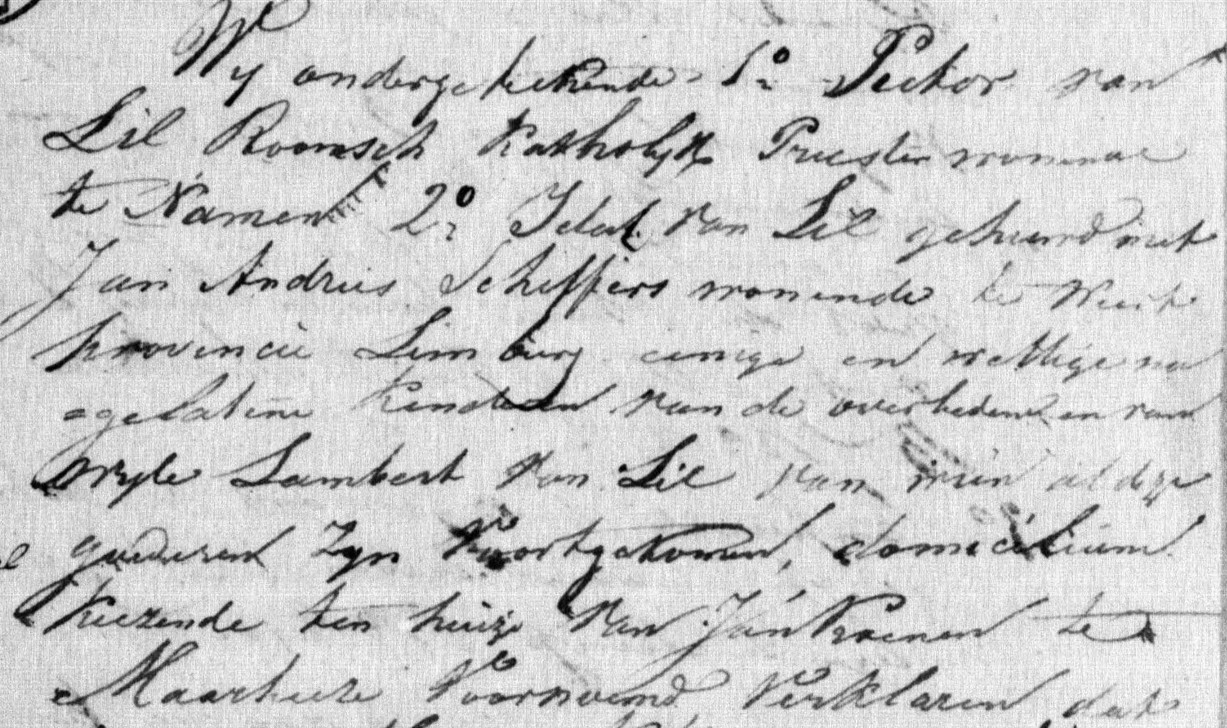 Wy ondergeteekende 1o Pector van
Lil Roomsch Katholyk Priester wonende
te Namen 2o Idal van Lil gehuwd met
Jan Andries Schiffers wonende te Weert
provincie Limburg eenige en wettige na
=gelatene Kinderen van de overledene en van
wyle Lambert van Lil van wien al deze
goederen zyn voortgekomen, domicilium
kiezende ten huize van Jan Koenen te
Maarheeze voornoemd verklaren, dat